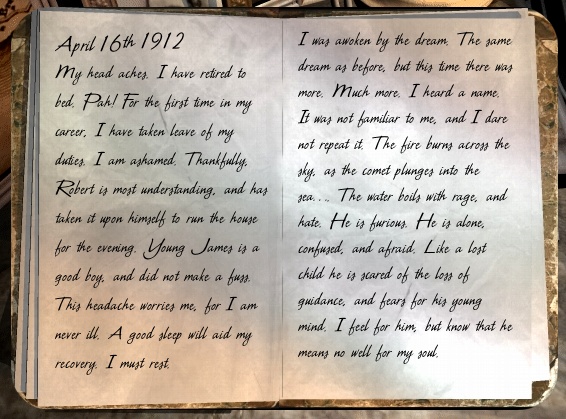 April 16th 1912
My head aches. I have retired to
bed. Pah! For the first time in my
career, I have taken leave of my
duties. I am ashamed. Thankfully,
Robert is most understanding, and has
taken it upon himself to run the house
for the evening. Young James is a
good boy, and did not make a fuss.
This headache worries me, for I am
never ill. A good sleep will aid my
recovery. I must rest.
I was awoken by the dream. The same
dream as before, but this time there was
more. Much more. I heard a name.
It was not familiar to me, and I dare
not repeat it. The fire burns across the
sky, as the comet plunges into the
sea.... The water boils with rage, and
hate. He is furious. He is alone,
confused, and afraid. Like a lost
child he is scared of the loss of
guidance, and fears for his young
mind. I feel for him, but know that he
means no well for my soul.